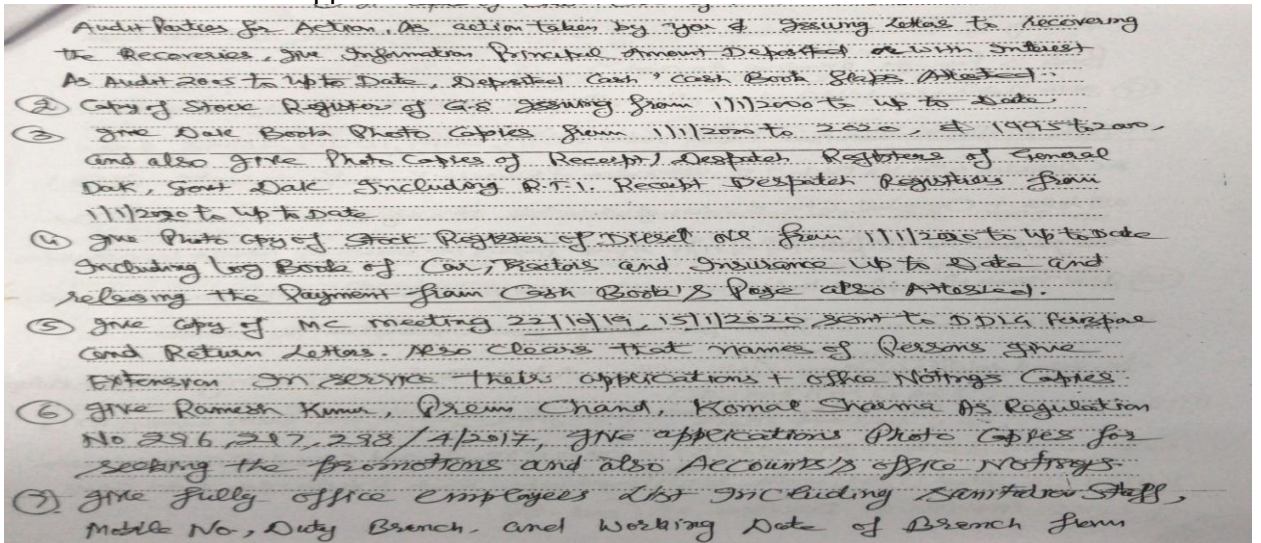 Audit Parties for Action, As action taken by you & Issuing Letters to recovering
the Recoveries, give Information Principal Amount Deposited or with Interest
As Audit 2005 to up to Date, Deposited Cash, Cash Book Attested.
② Copy of Stock Register of G-8 Issuing from 1/1/2000 to up to Date
③ give Dak Book Photo Copies from 1/1/2020 to 2020, & 1995 to 2000,
and also give Photo Copies of Receipt/Despatch Registers of General
Dak, Govt Dak Including R.T.I. Receipt Despatch Registers from
1/1/2020 to up to Date
④ give Photo Copy of Stock Register of Diesel oil from 1/1/2020 to up to Date
Including Log Book of Car, Tractors and Insurance up to Date and
releasing the Payment from Cash Book's Page also Attested.
⑤ give Copy of MC meeting 22/10/19, 15/1/2020 sent to DDLG Ferozpore
and Return Letters. Also Clears that names of Persons give
Extension In service their applications + office Notings Copies.
⑥ give Ramesh Kumar, Prem Chand, Komal Sharma As Regulation
No 296, 297, 298/4/2017, give applications Photo Copies for
seeking the promotions and also Accounts's office Notings.
⑦ give fully office employees List Including Staff,
Mobile No, Duty Branch, and Working Date of Branch from